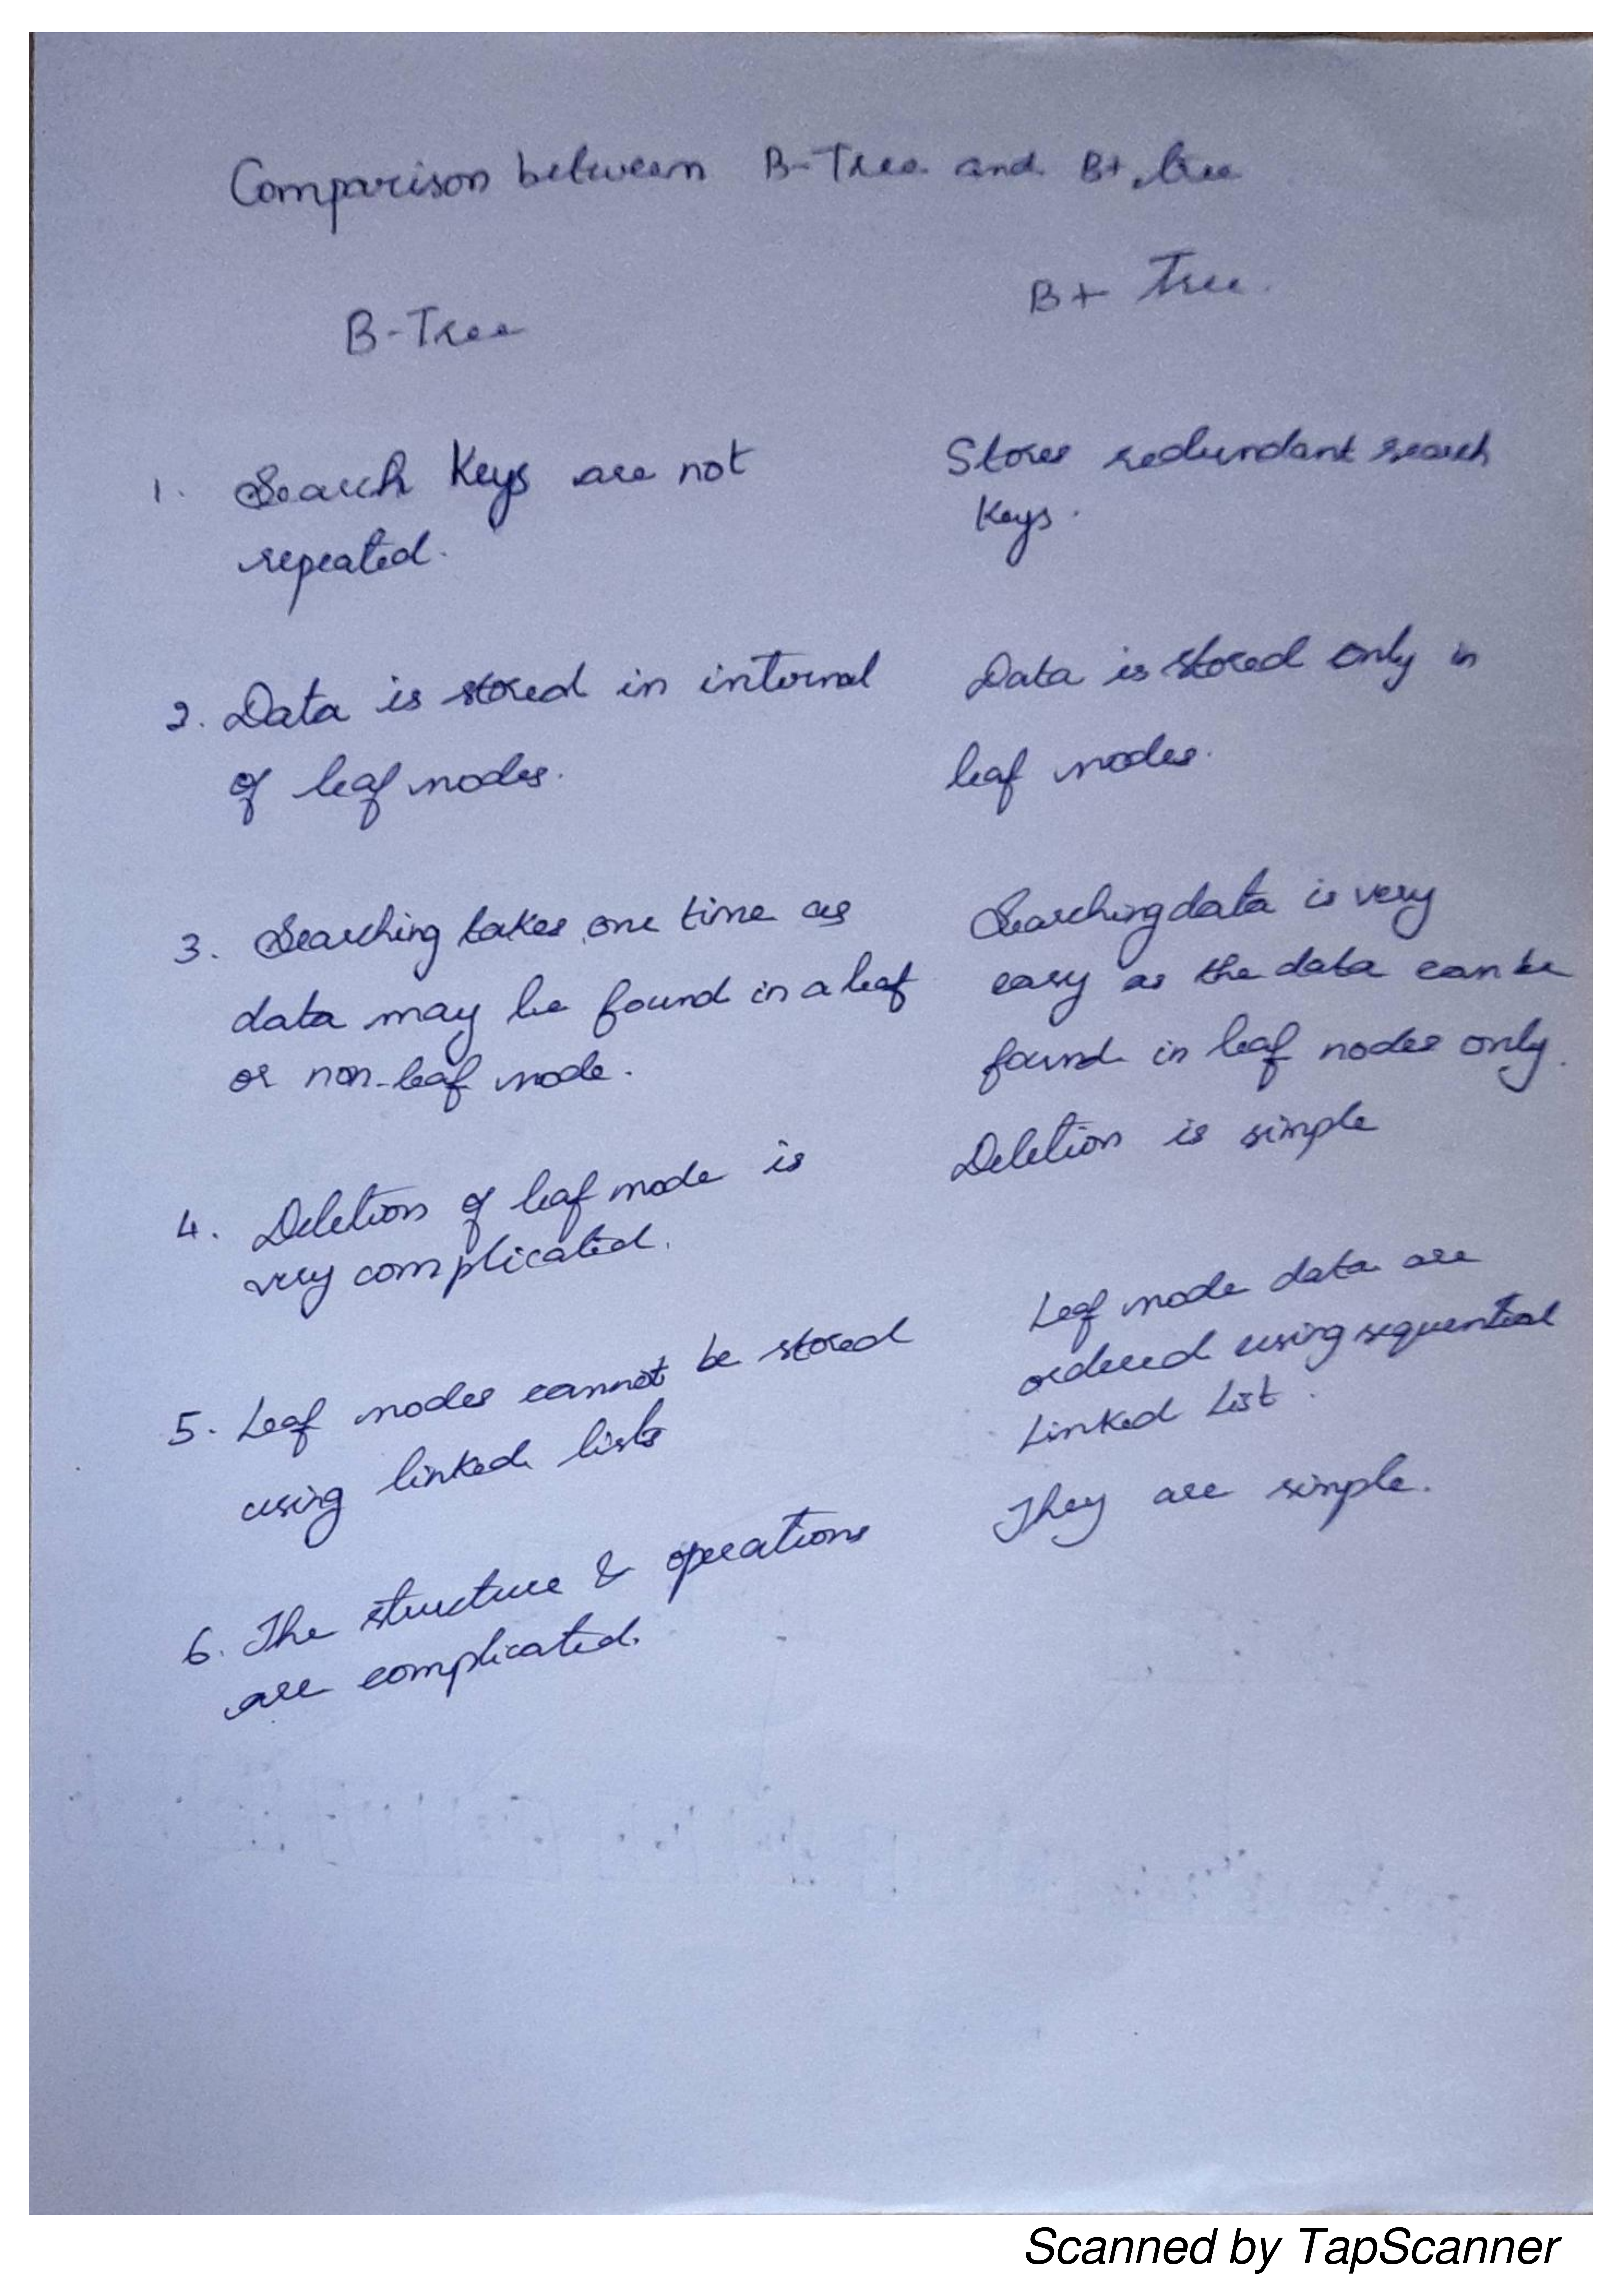 Comparison between B-Tree and B+ tree
B-Tree
B+ Tree.
1. Search Keys are not
repeated.
Stores redundant search
Keys.
2. Data is stored in internal
of leaf nodes.
Data is stored only in
leaf nodes.
3. Searching takes one time as
data may be found in a leaf
or non-leaf node.
Searching data is very
easy as the data can be
found in leaf nodes only.
4. Deletion of leaf node is
very complicated.
Deletion is simple
5. Leaf nodes cannot be stored
using linked lists
Leaf node data are
ordered using sequential
Linked List.
6. The structure & operations
are complicated.
They are simple.
Scanned by TapScanner